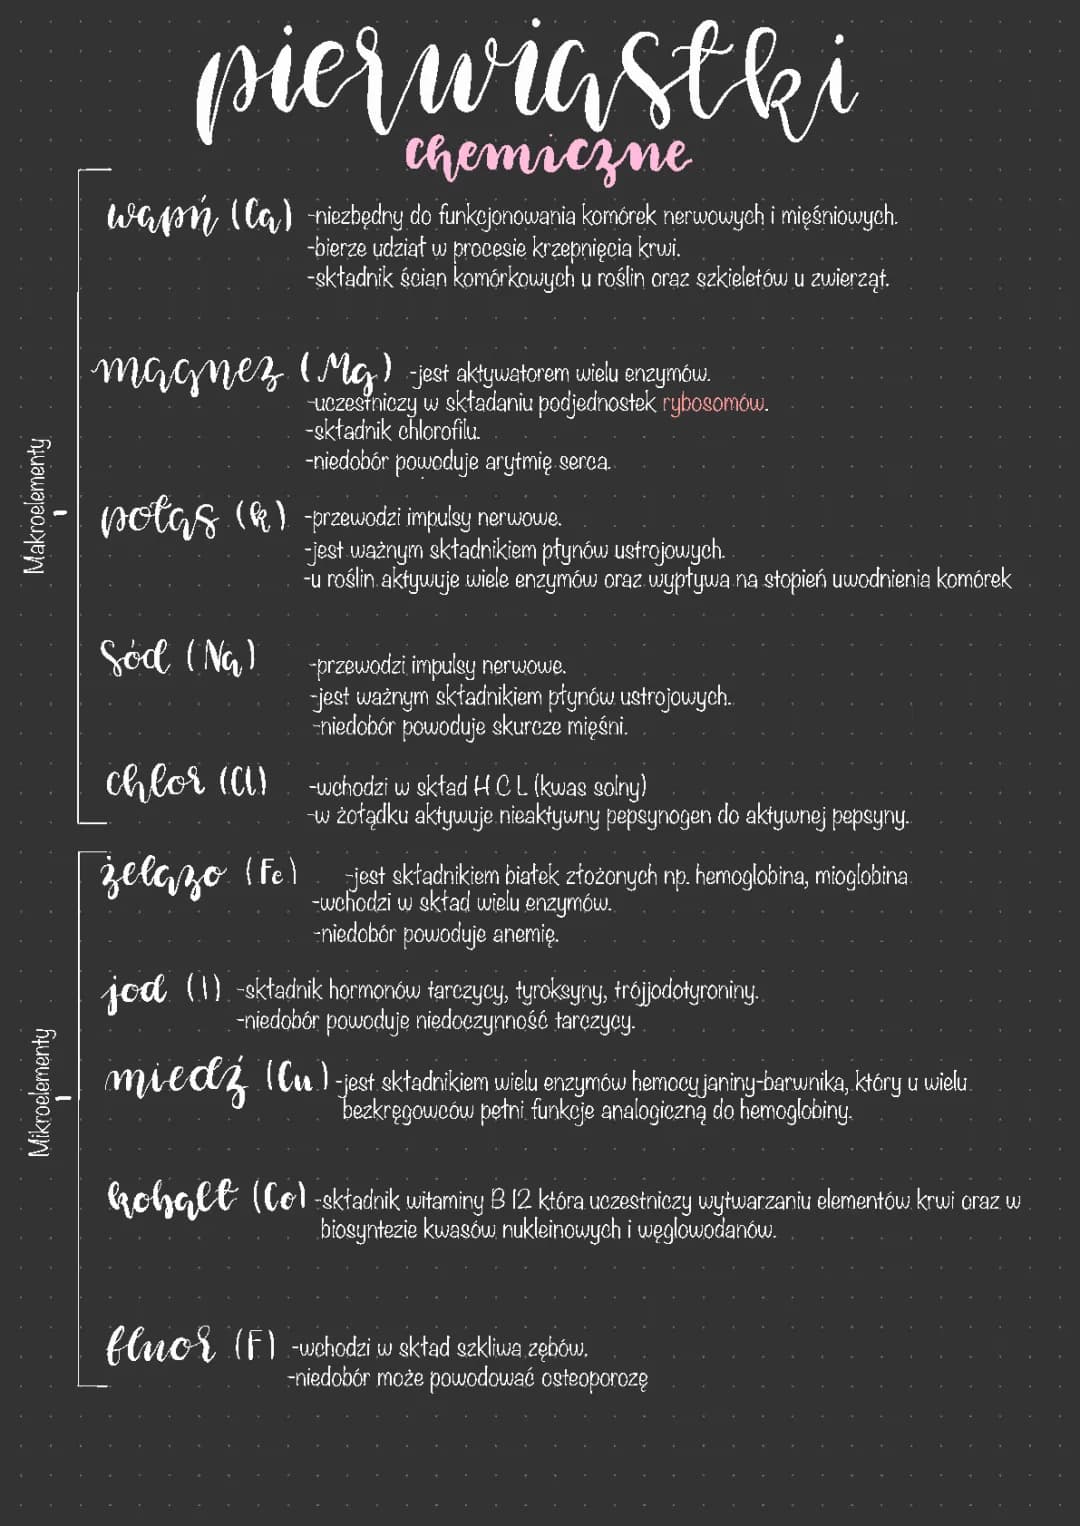 pierwiastki
chemiczne
Makroelementy
wapń (Ca) -niezbędny do funkcjonowania komórek nerwowych i mięśniowych.
-bierze udział w procesie krzepnięcia krwi.
-składnik ścian komórkowych u roślin oraz szkieletów u zwierząt.
magnez (Mg) -jest aktywatorem wielu enzymów.
-uczestniczy w składaniu podjednostek rybosomów.
-składnik chlorofilu.
-niedobór powoduje arytmię serca.
potas (k) -przewodzi impulsy nerwowe.
-jest ważnym składnikiem płynów ustrojowych.
-u roślin aktywuje wiele enzymów oraz wypływa na stopień uwodnienia komórek
Sód (Na) -przewodzi impulsy nerwowe.
-jest ważnym składnikiem płynów ustrojowych.
-niedobór powoduje skurcze mięśni.
chlor (Cl) -wchodzi w skład H C L (kwas solny)
-w żołądku aktywuje nieaktywny pepsynogen do aktywnej pepsyny.
Mikroelementy
żelazo (Fe) -jest składnikiem białek złożonych np. hemoglobina, mioglobina
-wchodzi w skład wielu enzymów.
-niedobór powoduje anemię.
jod (I) -składnik hormonów tarczycy, tyroksyny, trójjodotyroniny.
-niedobór powoduje niedoczynność tarczycy.
miedź (Cu) -jest składnikiem wielu enzymów hemocyjaniny-barwnika, który u wielu
bezkręgowców pełni funkcje analogiczną do hemoglobiny.
kobalt (Co) -składnik witaminy B 12 która uczestniczy wytwarzaniu elementów krwi oraz w
biosyntezie kwasów nukleinowych i węglowodanów.
fluor (F) -wchodzi w skład szkliwa zębów.
-niedobór może powodować osteoporozę